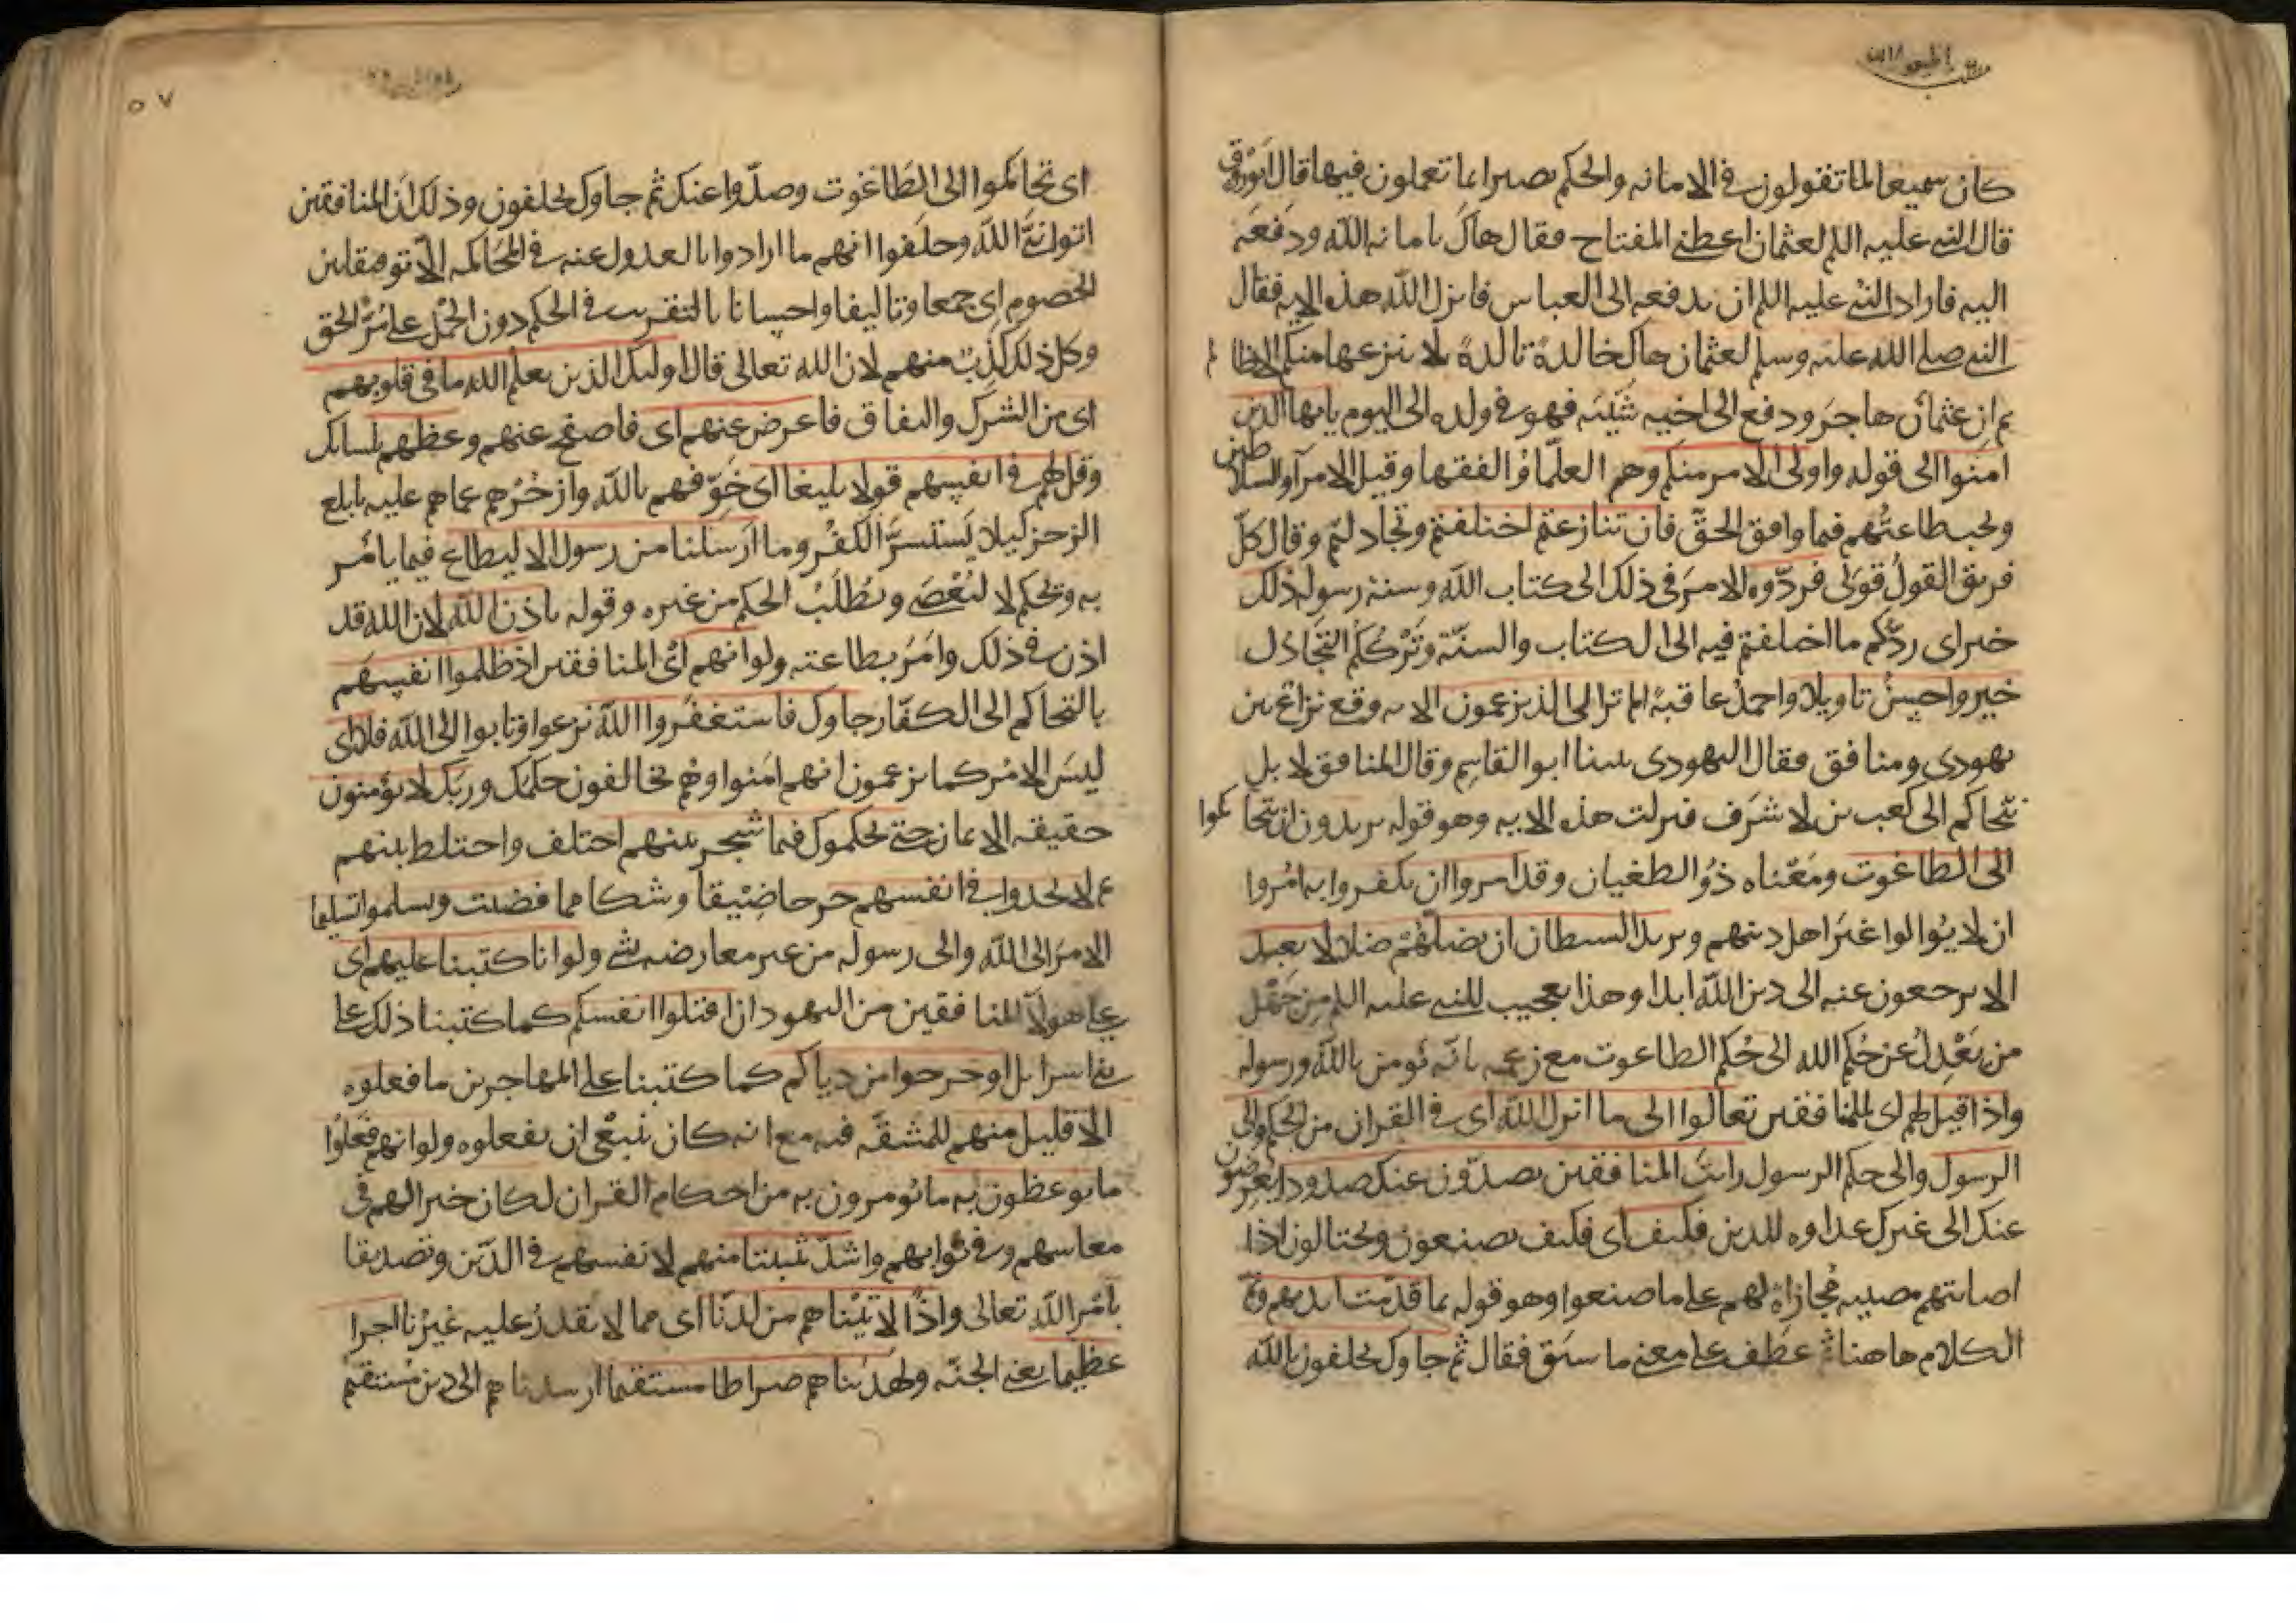 اطيعوا الله
كان سميعا لما تقولون في الامانه والحكم بصيرا بما تعملون فيها قال ابو روق
قال النبي عليه اللم لعثمان اعطني المفتاح فقال هاك بامانه الله ودفعه
اليه فاراد النبي عليه اللم ان يدفعه الى العباس فانزل الله هذه الايه فقال
النبي صلى الله عليه وسلم لعثمان هاك خالدة تالدة لا ينزعها منكم الا ظالم
ثم ان عثمان هاجر ودفع الى اخيه شيبه فهو في ولده الى اليوم يايها الذين
امنوا الى قوله واولى الامر منكم وهم العلمآ والفقها وقيل الامرآ والسلاطين
وتجب طاعتهم فيما وافق الحق فان تنازعتم اختلفتم وتجادلتم وقال كل
فريق القول قولى فردوه الامر في ذلك الى كتاب الله وسنة رسوله ذلك
خير اى ردكم ما اختلفتم فيه الى الكتاب والسنة وتركُكم التجادل
خير واحسن تاويلا واحمد عاقبة الم تر الى الذين يزعمون الايه وقع نزاع بين
يهودى ومنافق فقال اليهودى بيننا ابو القاسم وقال المنافق لا بل
نتحاكم الى كعب بن لاشرف فنزلت هذه الايه وهو قوله يريدون ان يتحاكموا
الى الطاغوت ومعناه ذو الطغيان وقد امروا ان يكفروا به امروا
ان لا يوالوا غير اهل دينهم ويريد الشيطان ان يضلهم ضلالا بعيد
الا يرجعون عنه الى دين الله ابدا وهذا تعجيب للنبي عليه اللم من جهل
من يعدل عن حكم الله الى حكم الطاعوت مع زعمه بانه يومن بالله ورسوله
واذا قيل لهم اى للمنافقين تعالوا الى ما انزل الله اى في القران من الحكم والى
الرسول والى حكم الرسول رايت المنافقين يصدون عنك صدودا يعرضون
عنك الى غيرك عداوه للدين فكيف اى فكيف يصنعون ويحتالون اذا
اصابتهم مصيبه مجازاة لهم على ما صنعوا وهو قوله بما قدمت ايديهم وتم
الكلام هاهنا ثم عطف على معنى ما سبق فقال ثم جاوك يحلفون بالله
٥٧
اى تحاكموا الى الطاغوت وصدوا عنك ثم جاوك يحلفون وذلك ان المنافقين
اتوا نبي الله وحلفوا انهم ما ارادوا بالعدول عنه في المحاكمه الا توفيقا بين
الخصوم اى جمعا وتاليفا واحسانا بالتقريب في الحكم دون الحمل على مر الحق
وكل ذلك كذب منهم لان الله تعالى قال اولىك الذين يعلم الله ما في قلوبهم
اى من الشرك والنفاق فاعرض عنهم اى فاصفح عنهم وعظهم بلسانك
وقل لهم في انفسهم قولا بليغا اى خوفهم بالله وازجرهم عما هم عليه بابلغ
الزجر كيلا يستسر الكفر وما ارسلنا من رسول الا ليطاع فيما يامر
به ويحكم لا ليعصى ويطلب الحكم من غيره وقوله باذن الله لان الله قد
اذن في ذلك وامر بطاعته ولو انهم اى المنافقين اذ ظلموا انفسهم
بالتحاكم الى الكفار جاوك فاستغفروا الله نزعوا وتابوا الى الله فلا اى
ليس الامر كما يزعمون انهم امنوا وهم يخالفون حكمك وربك لا يؤمنون
حقيقه الايمان حتى يحكموك فيما شجر بينهم اختلف واختلط بينهم
ثم لا يجدوا في انفسهم حرجا ضيقا وشكا مما قضيت ويسلموا تسليما
الامر الى الله والى رسوله من غير معارضه بشى ولو انا كتبنا عليهم اى
على هولآ المنافقين من اليهود ان اقتلوا انفسكم كما كتبنا ذلك على
بني اسرايل او خرجوا من دياكم كما كتبنا على المهاجرين ما فعلوه
الا قليل منهم للمشقه فيه مع انه كان ينبغي ان يفعلوه ولو انهم فعلوا
ما يوعظون به ما يؤمرون به من احكام القران لكان خيرا لهم في
معاشهم وفي ثوابهم واشد تثبيتا منهم لانفسهم في الدين وتصديقا
بامر الله تعالى واذًا لاتيناهم من لدنا اى مما لا يقدر عليه غيرنا اجرا
عظيما يعني الجنه ولهديناهم صراطا مستقيما ارشدناهم الى دين مستقيم